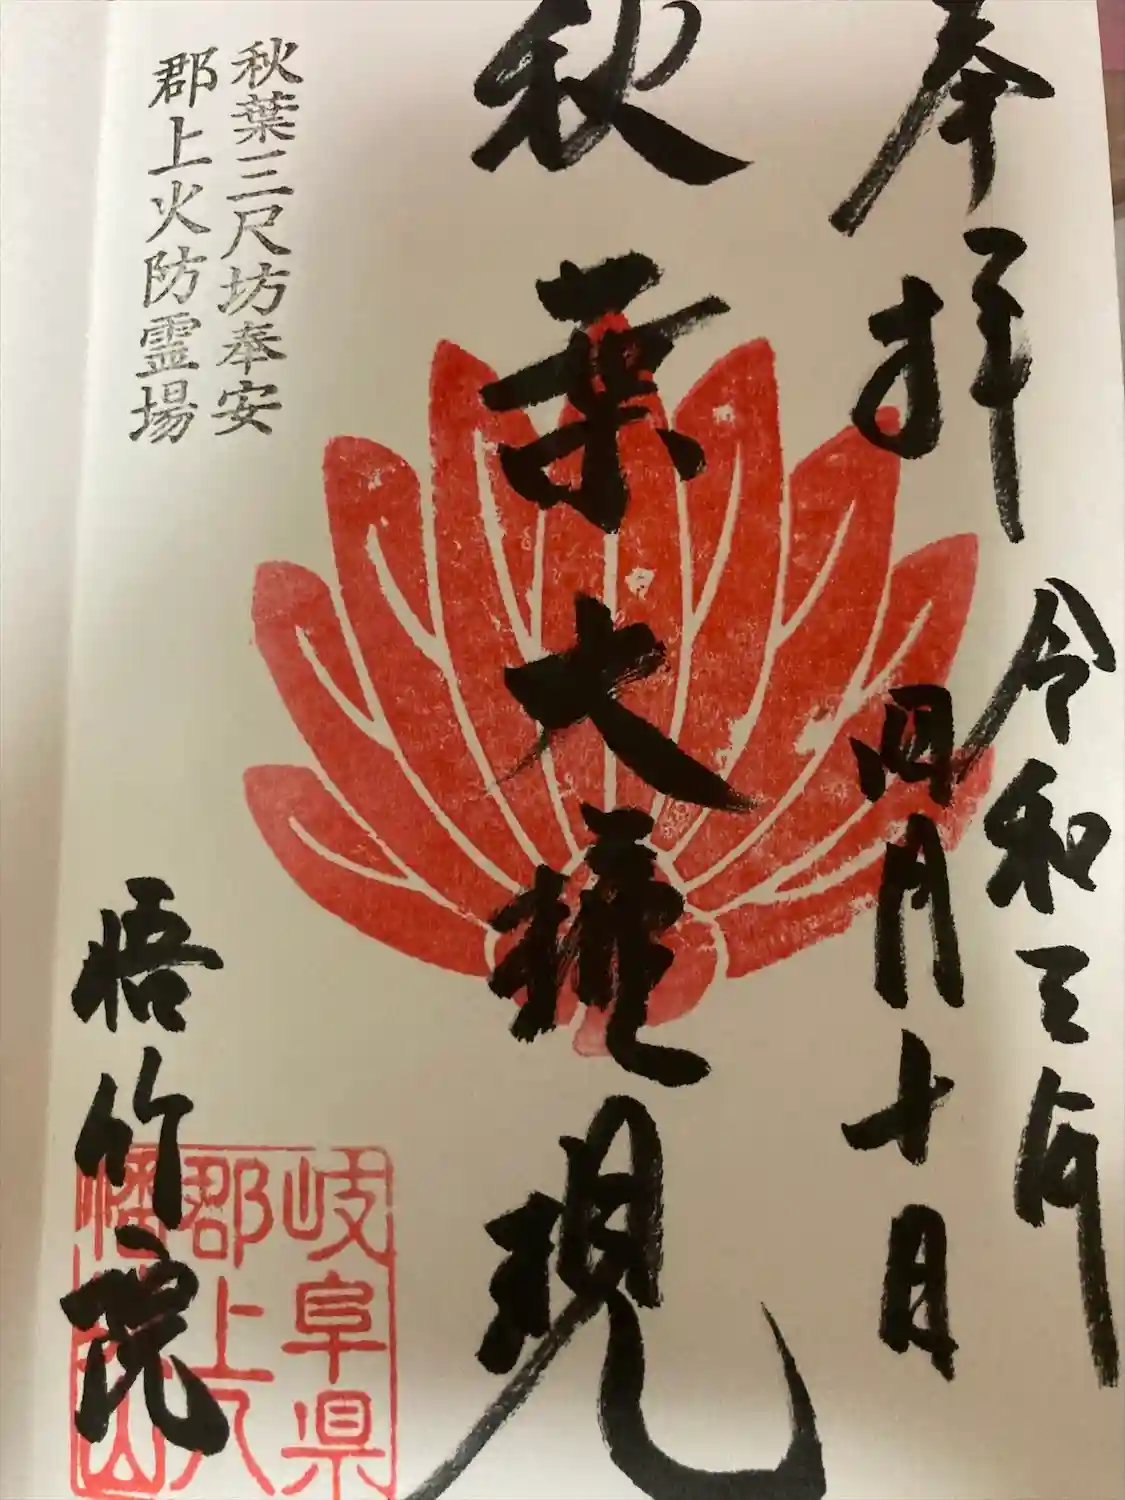 奉拝
令和三年
四月十日
秋葉大権現
秋葉三尺坊奉安
郡上火防霊場
悟竹院
岐阜県
郡上八
幡
山